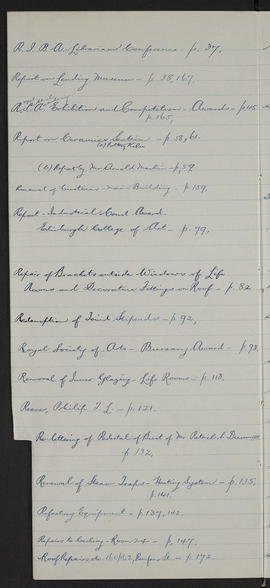 R.I.B.A. Librarians Conference - p. 37,
Report on Lending Museum - p. 38, 167,
R.S.A. Exhibition and Competition - Awards - p. 115,
p. 165,
Report on Ceramics Section - p. 58, 61.
(a) Pottery Kiln
(b) Report by Mr Arnold Martin - p. 59
Removal of Curtains - Main Building - p. 159
Report - Industrial Council Award.
Edinburgh College of Art - p. 79,
Repair of Brackets outside Windows of Life
Rooms and Decorative Fittings on Roof - p. 82
Redemption of Feind Stipends - p. 92,
Royal Society of Arts - Bursary Award - p. 93
Removal of Inner Glazing - Life Rooms - p. 113.
Reeve, Philip T. L. - p. 121.
Re-lettering of Pedestal of Bust of Mr Patrick S. Dunn
p. 132,
Renewal of Steam Traps - Heating System - p. 135,
p. 141,
Refectory Equipment - p. 137, 142
Repairs to Ceiling - Room 34 - p. 147,
Roof Repairs etc. 160/162, Renfrew St. - p. 172